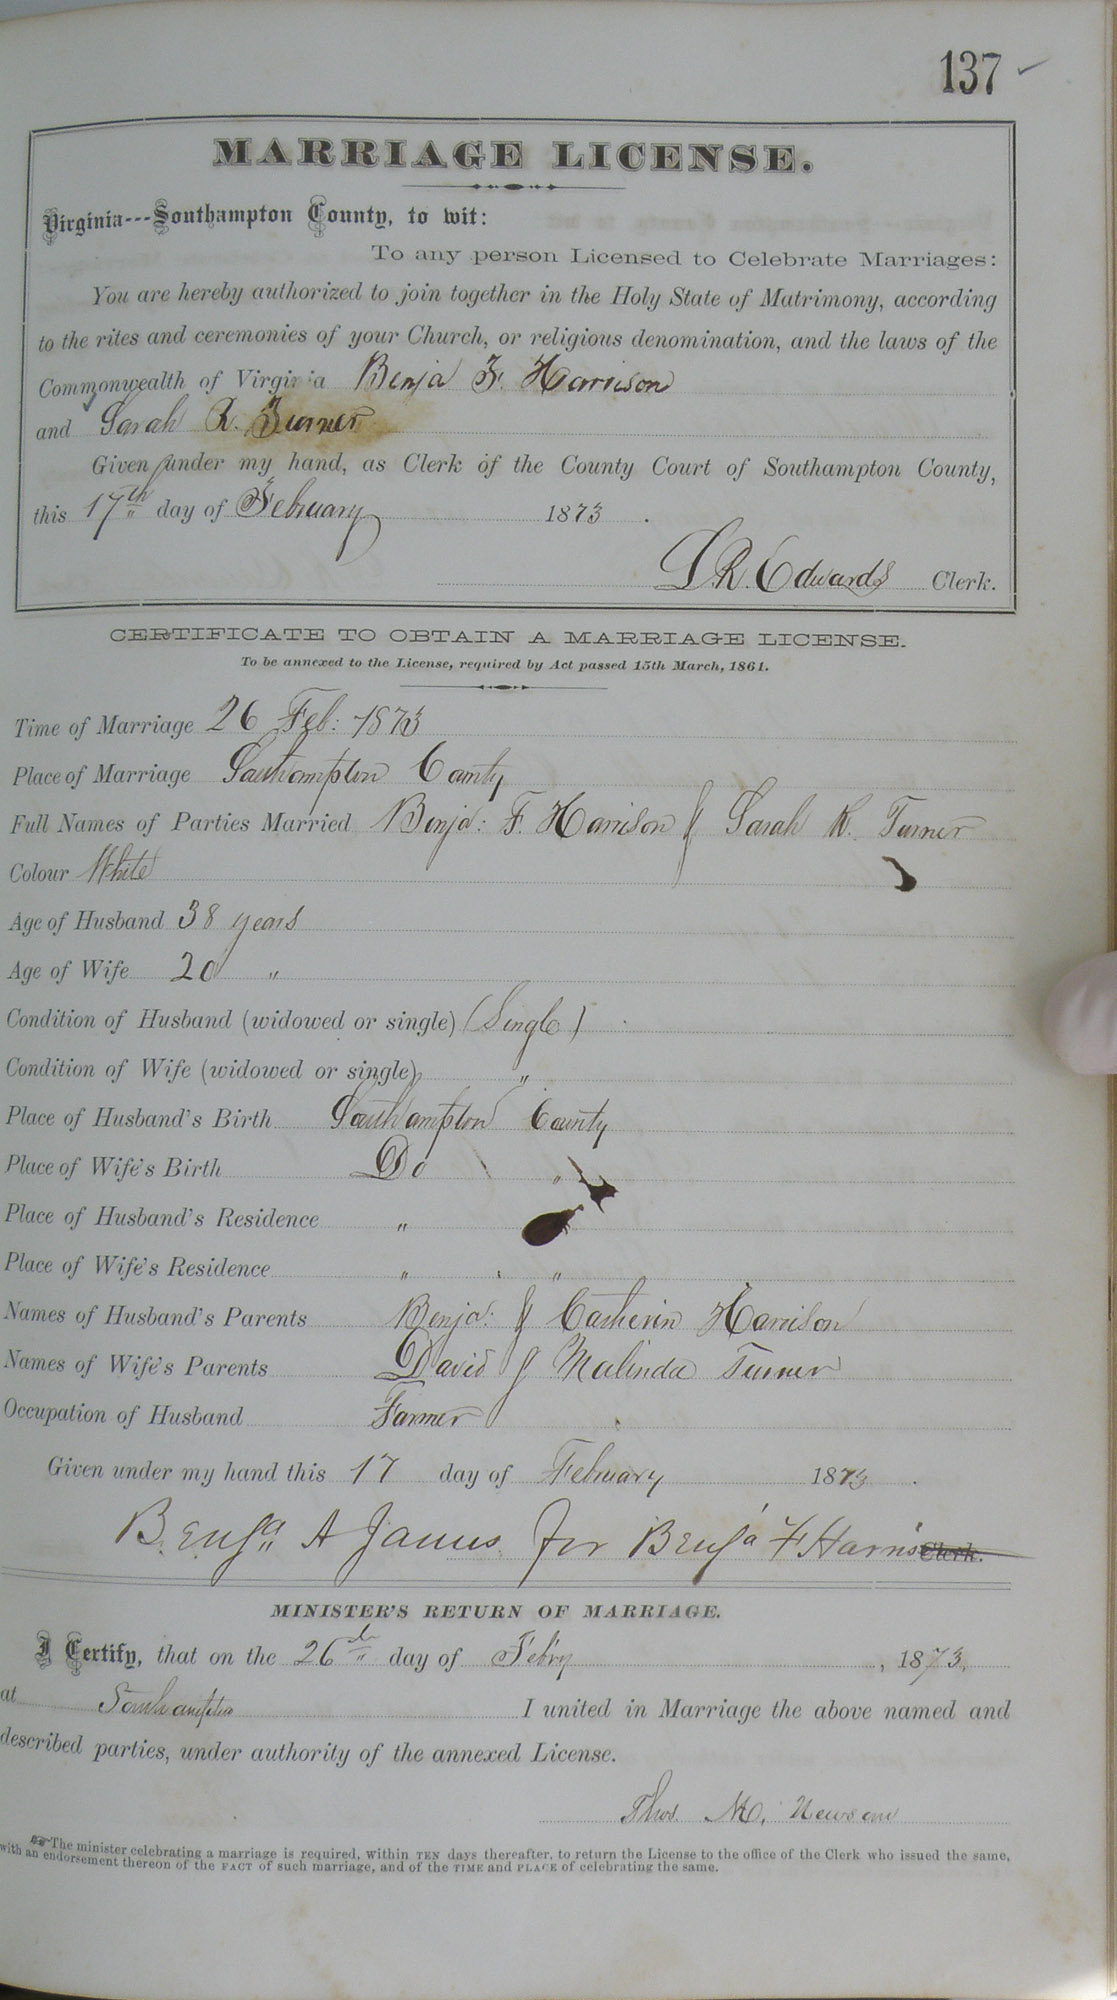 137 ✓
MARRIAGE LICENSE.
Virginia---Southampton County, to wit:
To any person Licensed to Celebrate Marriages:
You are hereby authorized to join together in the Holy State of Matrimony, according
to the rites and ceremonies of your Church, or religious denomination, and the laws of the
Commonwealth of Virginia Benja F. Harrison
and Sarah R. Turner
Given under my hand, as Clerk of the County Court of Southampton County,
this 17th day of February 1873 .
L R. Edwards Clerk.
CERTIFICATE TO OBTAIN A MARRIAGE LICENSE.
To be annexed to the License, required by Act passed 15th March, 1861.
Time of Marriage 26 Feb: 1873
Place of Marriage Southampton County
Full Names of Parties Married Benja: F. Harrison & Sarah R. Turner
Colour White
Age of Husband 38 years
Age of Wife 20 "
Condition of Husband (widowed or single) (Single)
Condition of Wife (widowed or single) "
Place of Husband's Birth Southampton County
Place of Wife's Birth Do "
Place of Husband's Residence "
Place of Wife's Residence " "
Names of Husband's Parents Benja: & Catherin Harrison
Names of Wife's Parents David & Malinda Turner
Occupation of Husband Farmer
Given under my hand this 17 day of February 1873 .
Benja A James for Benja F Harris Clerk.
MINISTER'S RETURN OF MARRIAGE.
I Certify, that on the 26th day of Febry , 1873,
at Southampton I united in Marriage the above named and
described parties, under authority of the annexed License.
Thos. M. Newsom
The minister celebrating a marriage is required, within TEN days thereafter, to return the License to the office of the Clerk who issued the same,
with an endorsement thereon of the FACT of such marriage, and of the TIME and PLACE of celebrating the same.